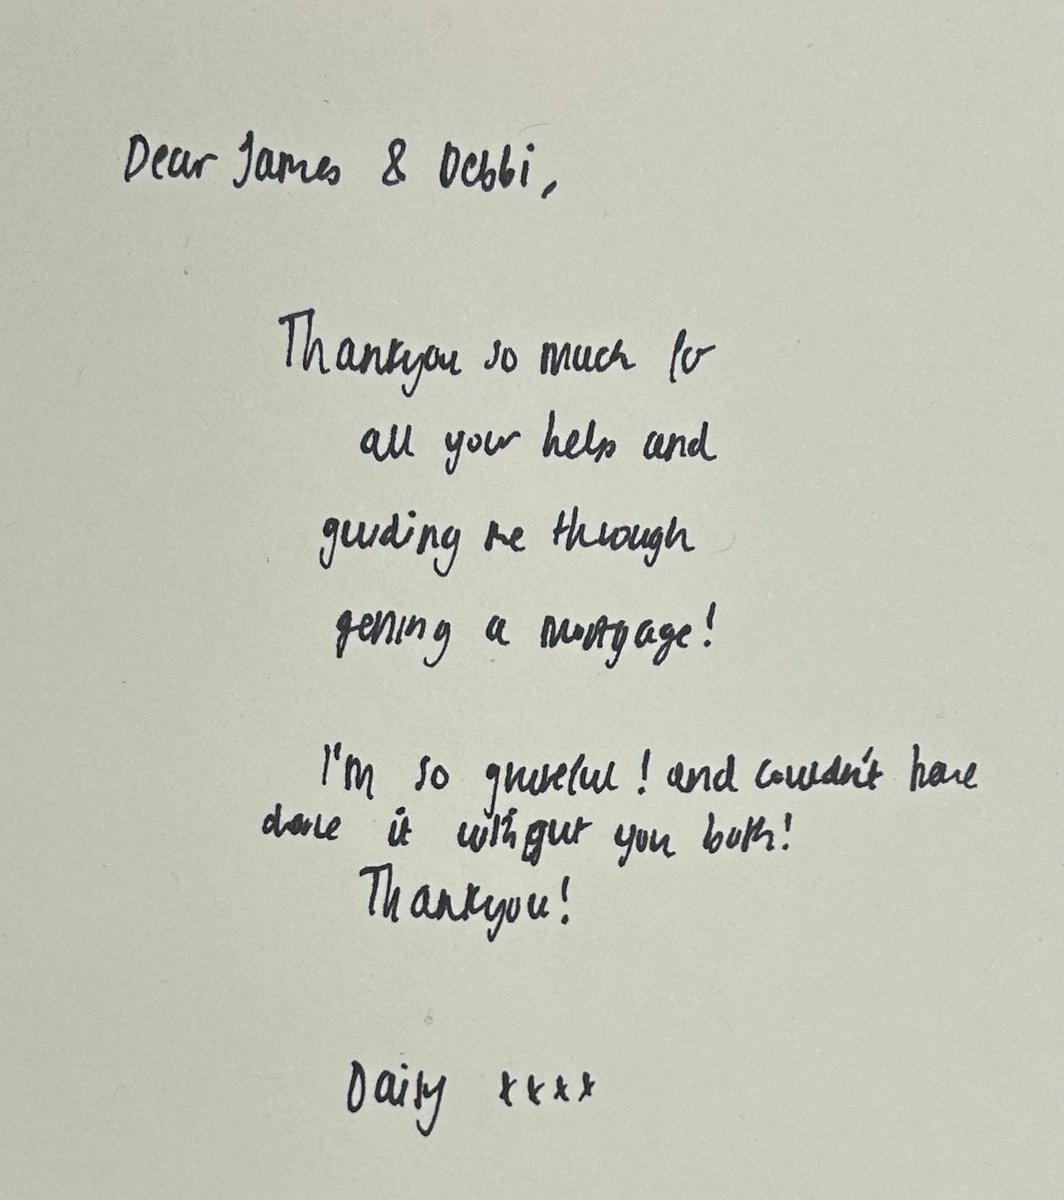 Dear James & Debbi,
Thankyou so much for
all your help and
guiding me through
getting a mortgage!
I'm so grateful! and couldn't have
done it without you both!
Thankyou!
Daisy xxxx